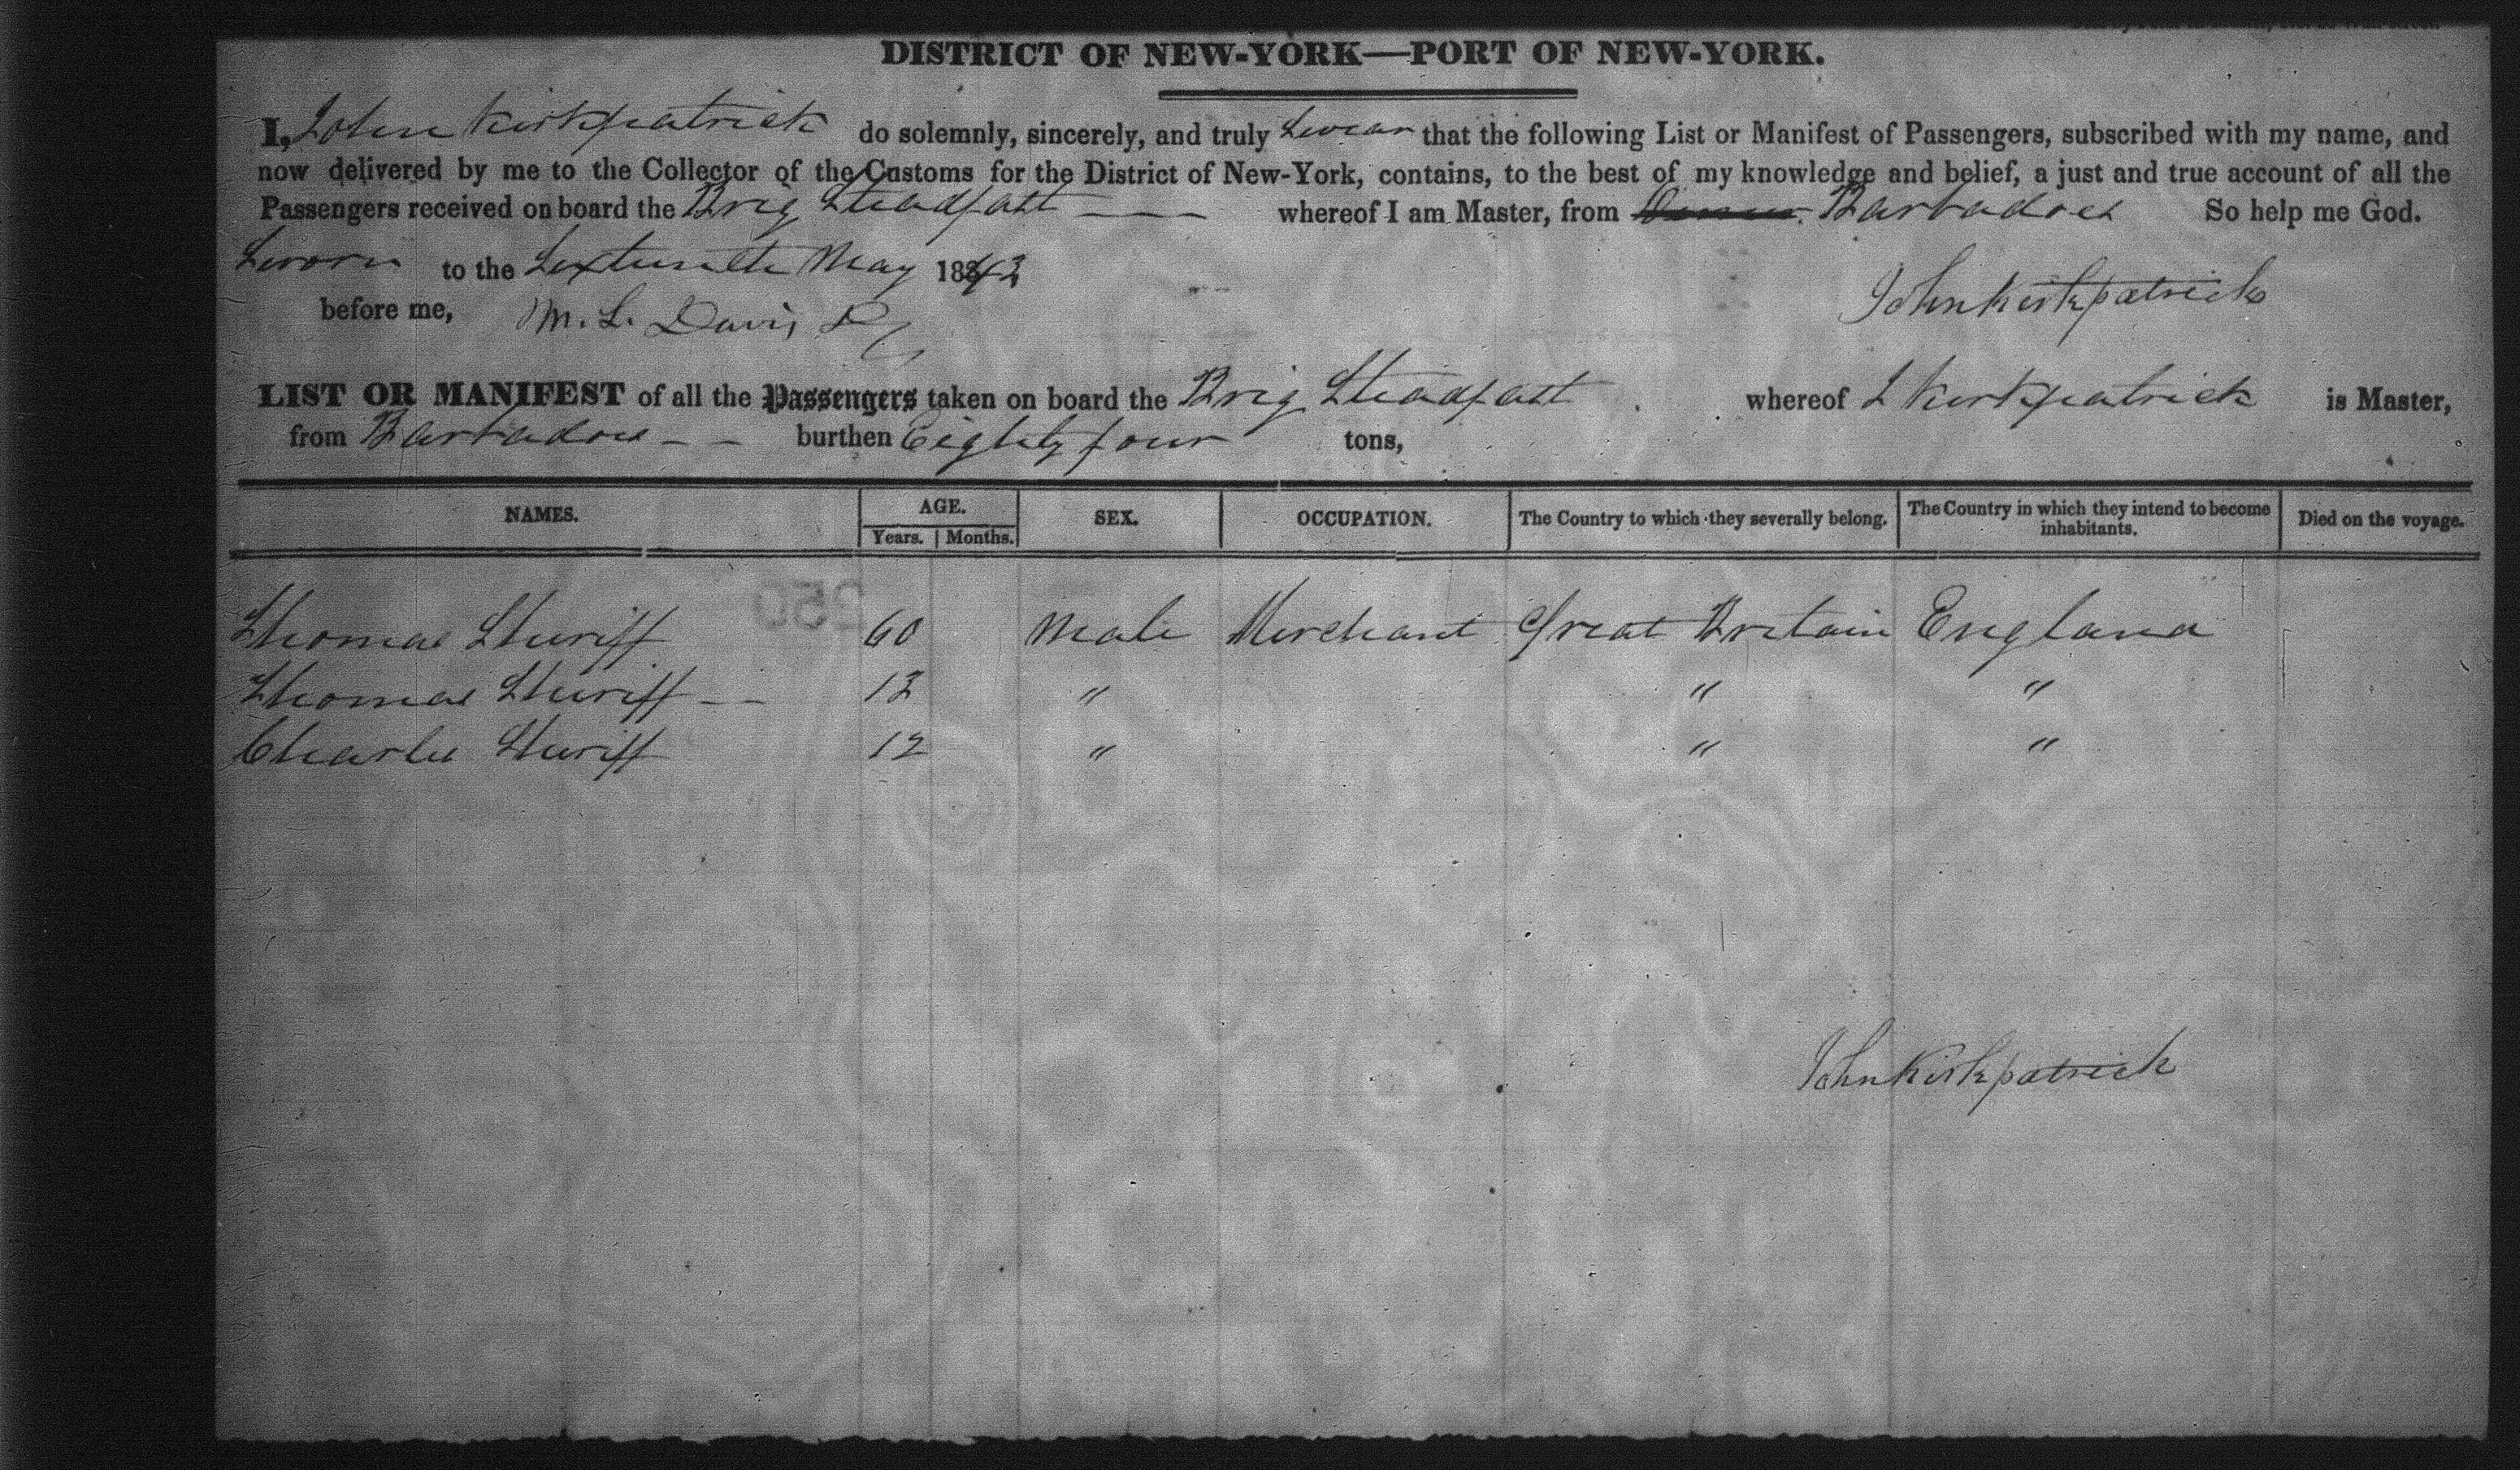 DISTRICT OF NEW-YORK—PORT OF NEW-YORK.
I, John Kirkpatrick do solemnly, sincerely, and truly Swear that the following List or Manifest of Passengers, subscribed with my name, and
now delivered by me to the Collector of the Customs for the District of New-York, contains, to the best of my knowledge and belief, a just and true account of all the
Passengers received on board the Brig Steadfast whereof I am Master, from Barbadoes So help me God.
Sworn to the Sixteenth May 1842
before me, M. L. Davis
John Kirkpatrick
LIST OR MANIFEST of all the Passengers taken on board the Brig Steadfast whereof J Kirkpatrick is Master,
from Barbadoes burthen Eighty four tons,
NAMES. AGE. SEX. OCCUPATION. The Country to which they severally belong. The Country in which they intend to become inhabitants. Died on the voyage.
Years. Months.
250
Thomas Sheriff 60 Male Merchant Great Britain England
Thomas Sheriff -- 13 " " "
Charles Sheriff 12 " " "
John Kirkpatrick